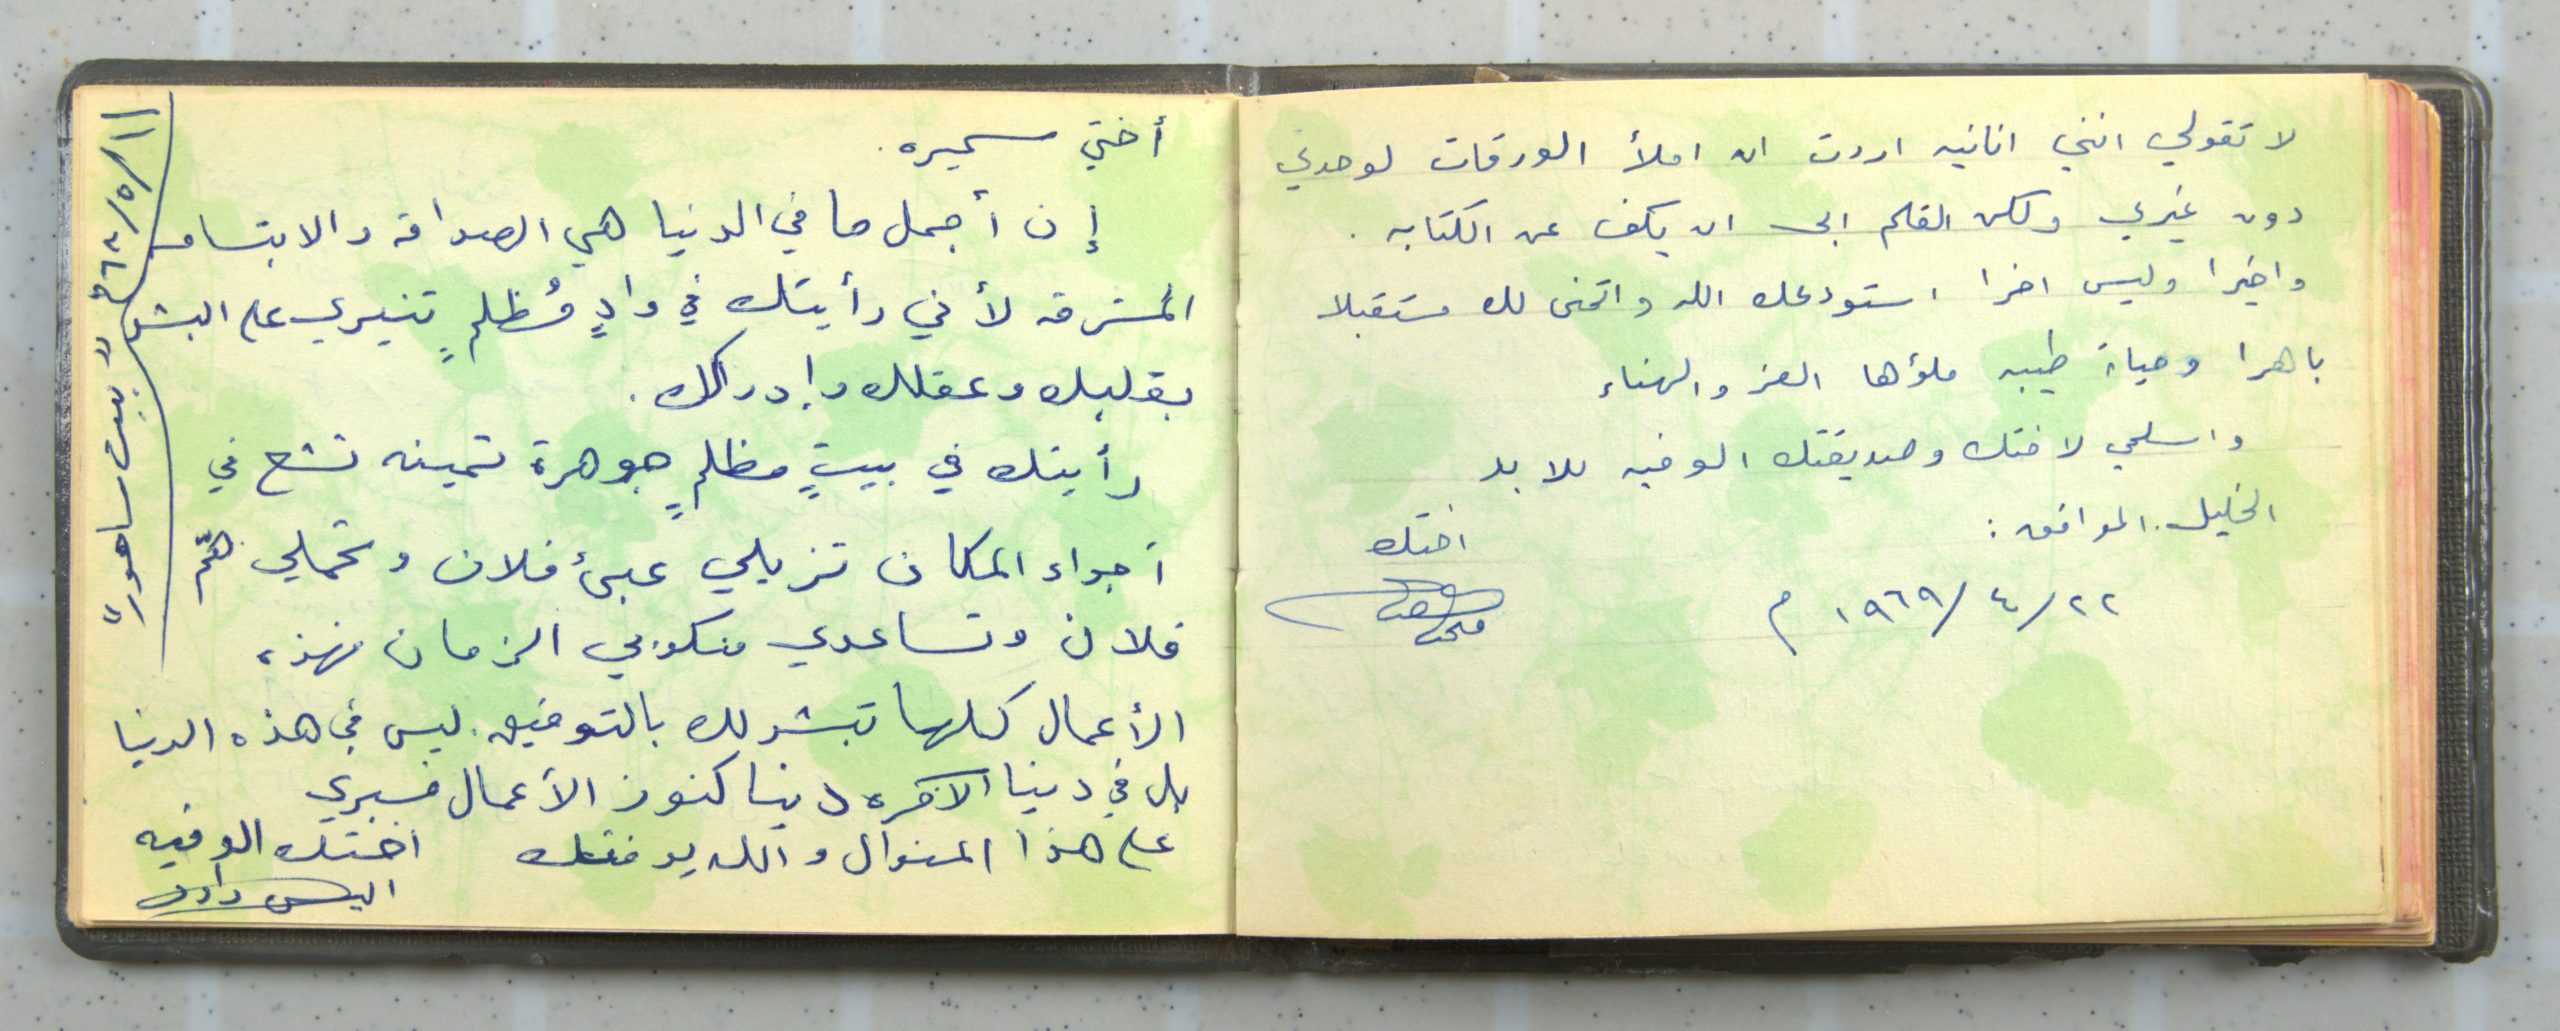 لا تقولي انني انانيه اردت ان املأ الورقات لوحدي
دون غيري ولكن القلم ابى ان يكف عن الكتابه .
واخيرا وليس اخرا استودعك الله واتمنى لك مستقبلا
باهرا وحياة طيبه ملؤها العز والهناء
واسلمي لاختك وصديقتك الوفيه للابد
الخليل . الموافق :
٢٢/٤/١٩٦٩ م
اختك
أختي سميره .
إن أجمل ما في الدنيا هي الصداقه والابتسامه
المشرقه لأني رأيتك في وادٍ مُظلمٍ تنيري على البشر
بقلبك وعقلك وإدراكك .
رأيتك في بيتٍ مظلمٍ جوهرة ثمينه تشع في
أجواء المكان تزيلي عبئ فلان وتحملي همّ
فلان وتساعدي منكوبي الزمان فهذه
الأعمال كلها تبشر لك بالتوفيق . ليس في هذه الدنيا
بل في دنيا الآخره دنيا كنوز الأعمال فسيري
على هذا المنوال والله يوفقك
اختك الوفيه
اليس داود
١١/٥/٦٨م "بيت ساحور"